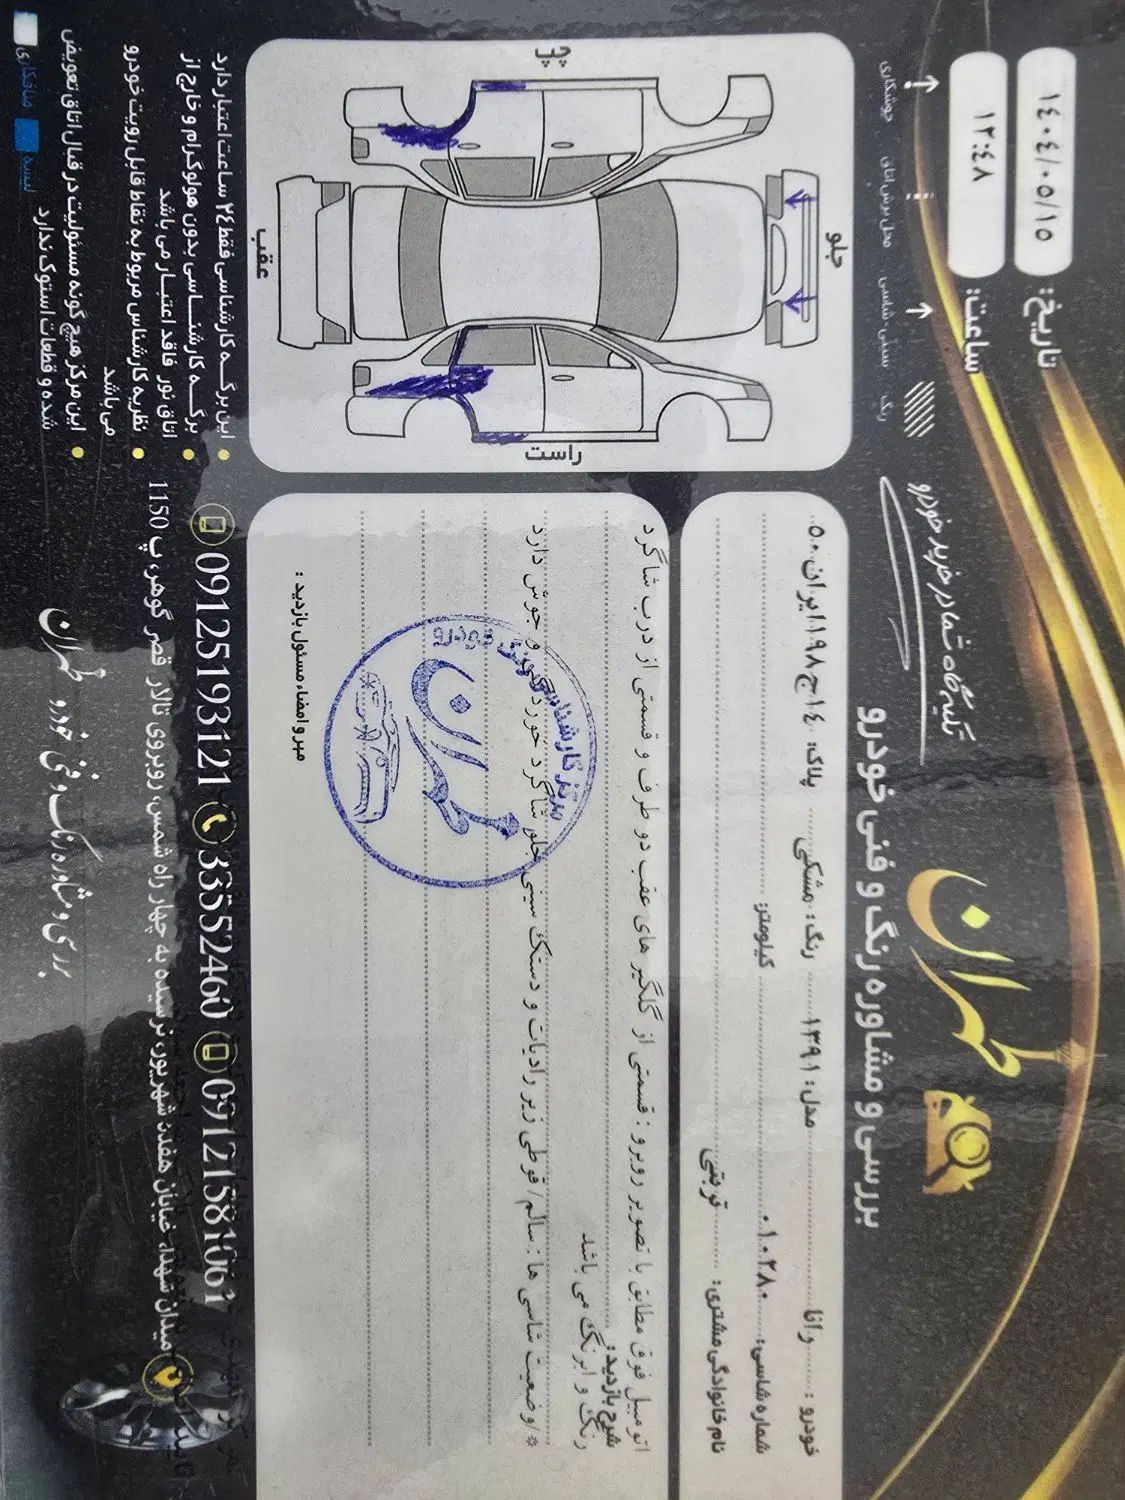 تاریخ: ۱۴۰۴/۰۵/۱۵
ساعت: ۱۲:۴۸
تهران
بررسی و مشاوره رنگ و فنی خودرو
تکیه‌گاه شما در خرید خودرو
جوشکاری
محل برش اتاق
سینی-شاسی
رنگ
خودرو: وانا مدل: ۱۳۹۱ رنگ: مشکی پلاک: ۱۴ج۱۹۸ایران۵۰
شماره شاسی: ۰۱۰۲۸۰ کیلومتر:
نام خانوادگی مشتری: تربتی
شرح بازدید:
اتومبیل فوق مطابق با تصویر روبرو: قسمتی از گلگیر های عقب دو طرف و قسمتی از درب شاگرد
رنگ و ابرنگ می باشد
*/وضعیت شاسی ها: سالم/ قوطی زیر رادیات و دستک سینی جلو شاگرد خوردگی و جوش دارد
مرکز کارشناسی خودرو
تهران
مهر و امضاء مسئول بازدید:
چپ
جلو
عقب
راست
این برگه کارشناسی فقط ۲۴ ساعت اعتبار دارد
برگه کارشناسی بدون هولوگرام و خارج از
اتاق نور فاقد اعتبار می باشد
نظریه کارشناس مربوط به نقاط قابل رویت خودرو
می باشد
این مرکز هیچ گونه مسئولیت در قبال اتاق تعویض
شده و قطعات استوک ندارد
صافکاری
لیسه
09125193121 33552460 09121581061
میدان شهدا، خیابان هفده شهریور، نرسیده به چهار راه شمس، روبروی تالار قصر گوهر، پ 1150
بررسی و مشاوره رنگ و فنی خودرو تهران